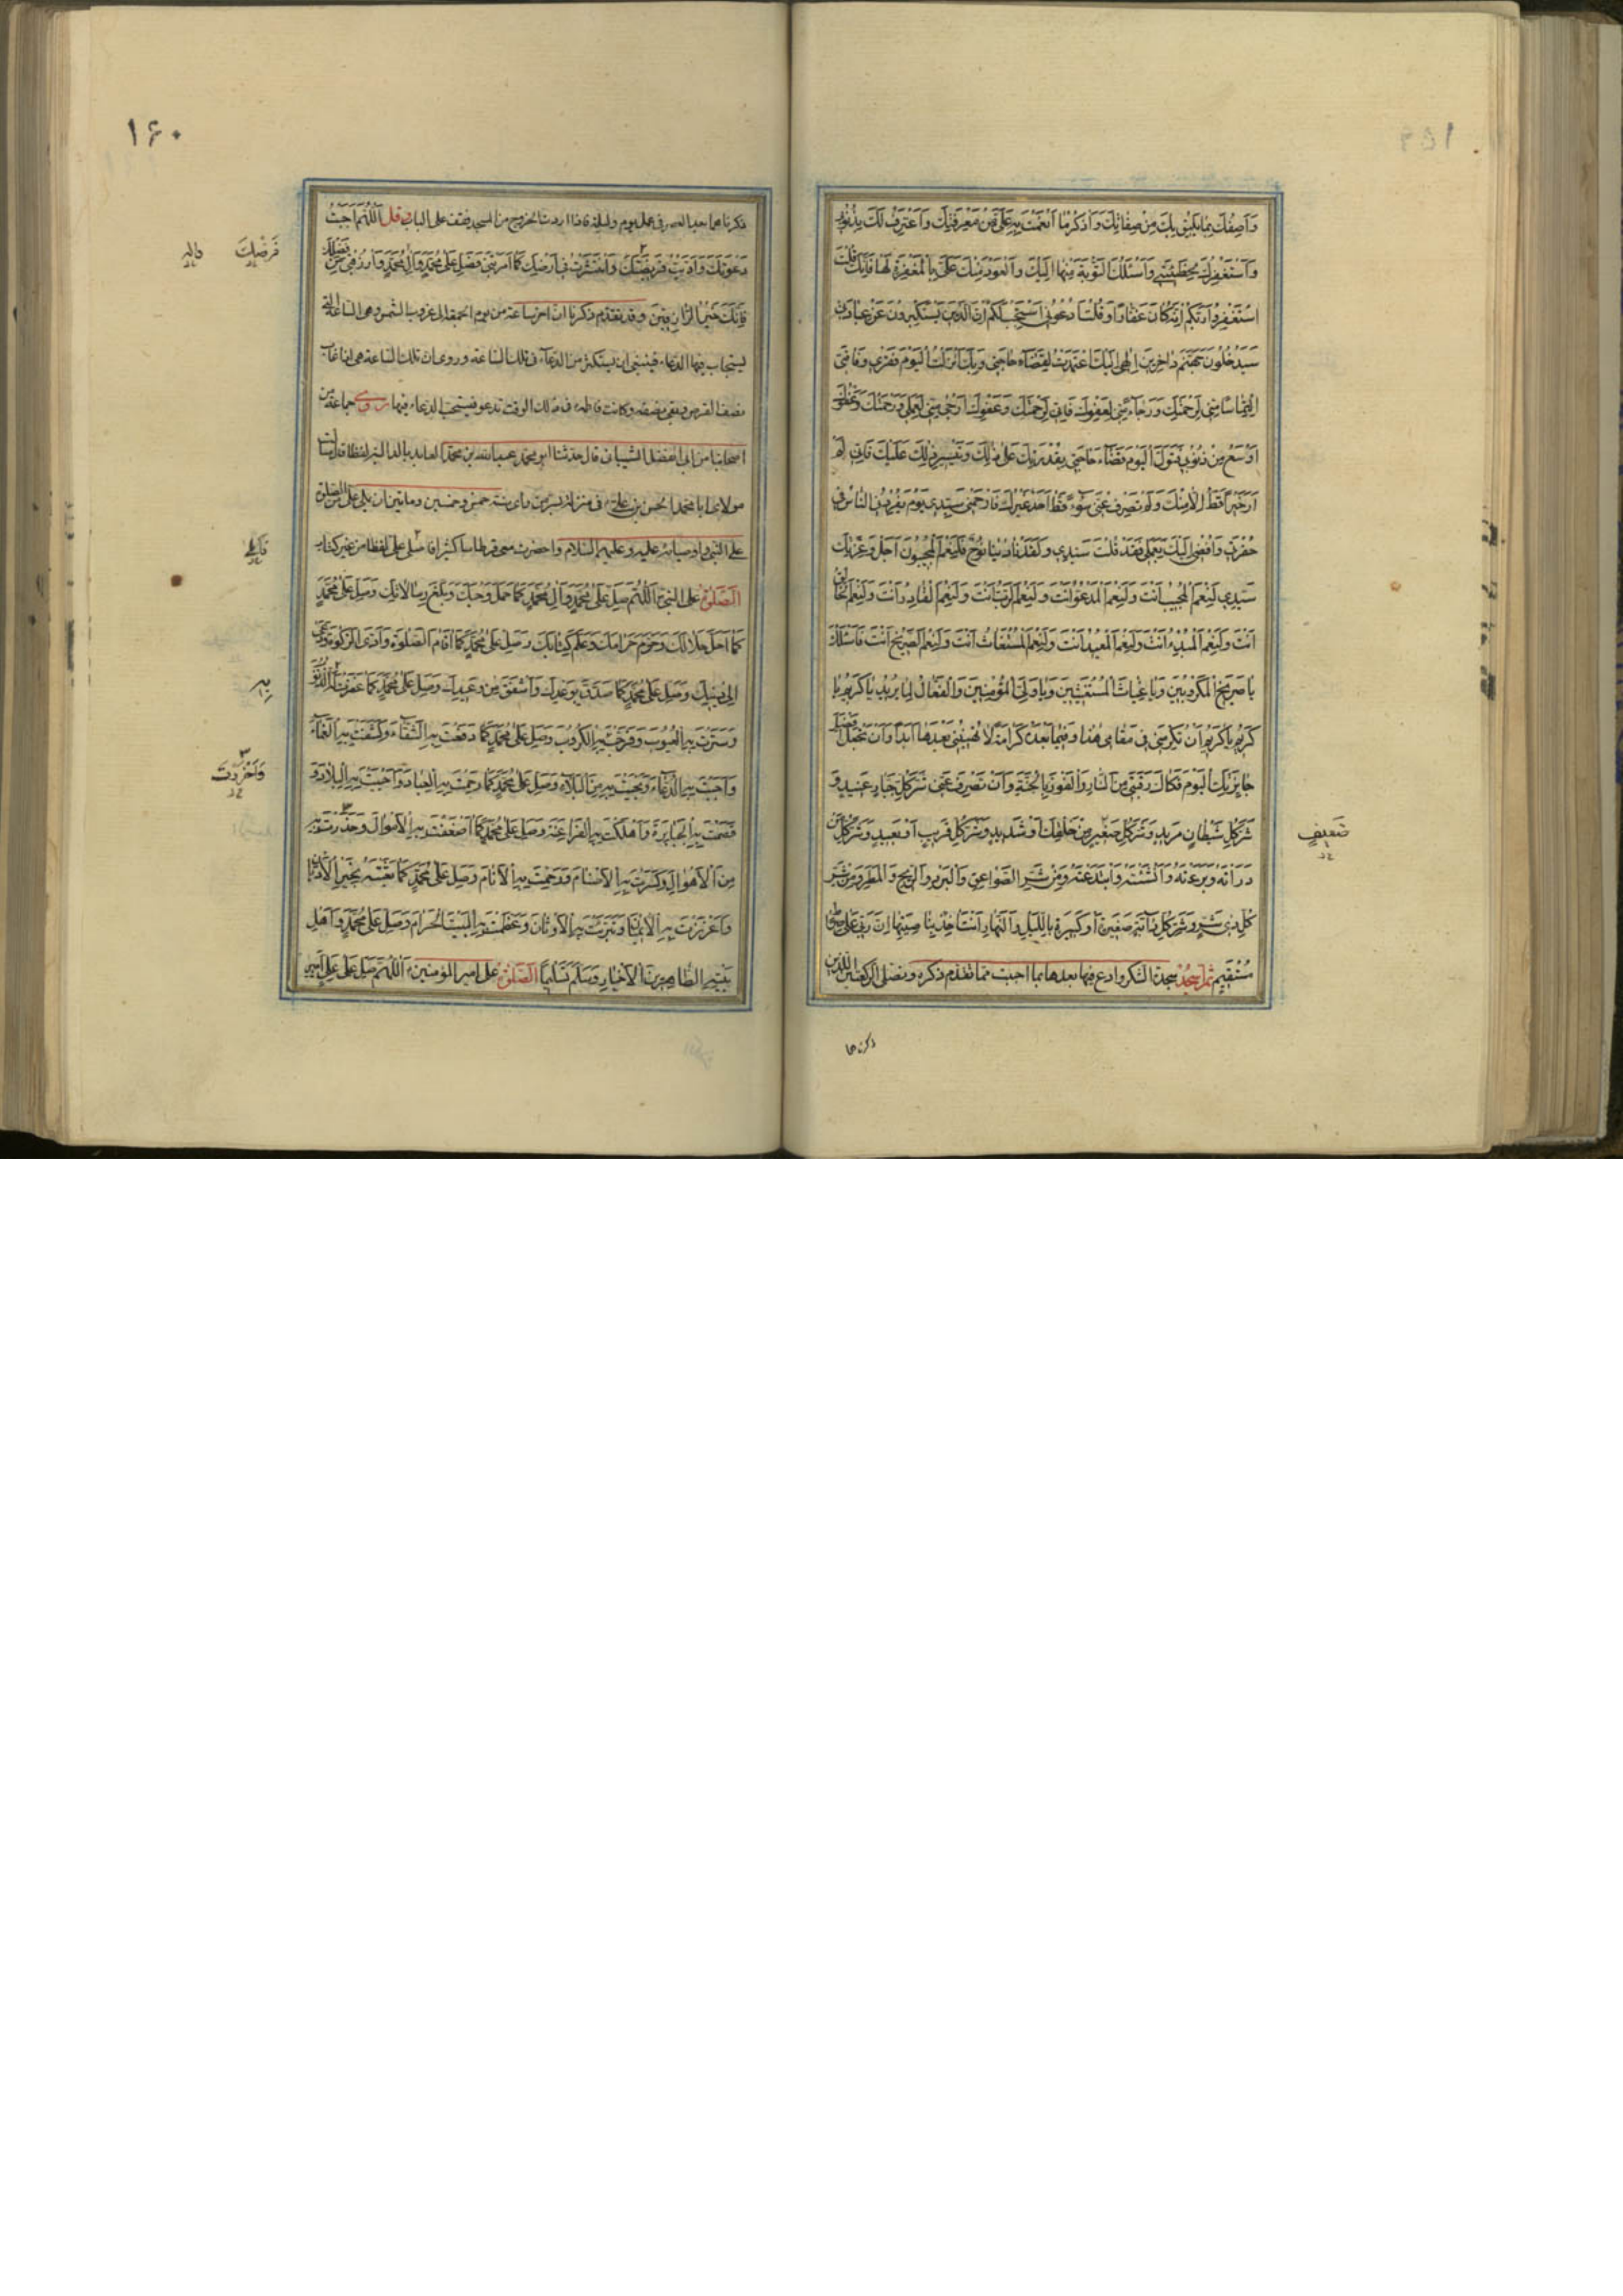 وَاَصِفُكَ بِمٰا يَليٖقُ بِكَ مِنْ صِفٰاتِكَ وَاَذْكُرُ مٰا اَنْعَمْتَ بِهِ عَلَىَّ مِنْ مَعْرِفَتِكَ وَاَعْتَرِفُ لَكَ بِذُنُوبٖى
وَاَسْتَغْفِرُكَ لِخَطيٖئَتٖى وَاَسْئَلُكَ التَّوْبَةَ مِنْهٰا اِلَيْكَ وَالْعَوْدَ مِنْكَ عَلَىَّ بِالْمَغْفِرَةِ لَهٰا فَاِنَّكَ قُلْتَ
اسْتَغْفِرُوا رَبَّكُمْ اِنَّهُ كٰانَ غَفّٰارًا وَقُلْتَ ادْعُونٖى اَسْتَجِبْ لَكُمْ اِنَّ الَّذيٖنَ يَسْتَكْبِرُونَ عَنْ عِبٰادَتٖى
سَيَدْخُلُونَ جَهَنَّمَ دٰاخِريٖنَ اِلٰهٖى اِلَيْكَ اعْتَمَدْتُ لِقَضٰاءِ حٰاجَتٖى وَبِكَ اَنْزَلْتُ الْيَوْمَ فَقْرٖى وَفٰاقَتٖى
الْتِمٰاسًا مِنّٖى لِرَحْمَتِكَ وَرَجٰاءً مِنّٖى لِعَفْوِكَ فَاِنّٖى لِرَحْمَتِكَ وَعَفْوِكَ اَرْجٰى مِنّٖى لِعَمَلٖى وَرَحْمَتُكَ وَعَفْوُكَ
اَوْسَعُ مِنْ ذُنُوبٖى فَتَوَلَّ الْيَوْمَ قَضٰاءَ حٰاجَتٖى بِقُدْرَتِكَ عَلٰى ذٰلِكَ وَتَيْسِيرِ ذٰلِكَ عَلَيْكَ فَاِنّٖى لَمْ
اَرَ خَيْرًا قَطُّ اِلّٰا مِنْكَ وَلَمْ يَصْرِفْ عَنّٖى سُوءًا قَطُّ اَحَدٌ غَيْرُكَ فَارْحَمْنٖى سَيِّدٖى يَوْمَ يُفْرِدُنِى النّٰاسُ فٖى
حُفْرَتٖى وَاُفْضٖى اِلَيْكَ بِعَمَلٖى فَقَدْ قُلْتَ سَيِّدٖى وَلَقَدْ نٰادٰينٰا نُوحٌ فَلَنِعْمَ الْمُجيٖبُونَ اَجَلْ وَعِزَّتِكَ
سَيِّدٖى لَنِعْمَ الْمُجيٖبُ اَنْتَ وَلَنِعْمَ الْمَدْعُوُّ اَنْتَ وَلَنِعْمَ الرَّبُّ اَنْتَ وَلَنِعْمَ الْقٰادِرُ اَنْتَ وَلَنِعْمَ الْخٰالِقُ
اَنْتَ وَلَنِعْمَ الْمُبْدِئُ اَنْتَ وَلَنِعْمَ الْمُعيٖدُ اَنْتَ وَلَنِعْمَ الْمُسْتَغٰاثُ اَنْتَ وَلَنِعْمَ الصَّريٖخُ اَنْتَ فَاَسْئَلُكَ
يٰا صَريٖخَ الْمَكْرُوبيٖنَ وَيٰا غِيٰاثَ الْمُسْتَغيٖثيٖنَ وَيٰا وَلِىَّ الْمُؤْمِنيٖنَ وَالْفَعّٰالُ لِمٰا يُريٖدُ يٰا كَريٖمُ يٰا
كَريٖمُ يٰا كَريٖمُ اَنْ تُكْرِمَنٖى فٖى مَقٰامٖى هٰذٰا وَفيٖمٰا بَعْدَهُ كَرٰامَةً لٰا تُهيٖنُنٖى بَعْدَهٰا اَبَدًا وَاَنْ تَجْعَلَ اَفْضَلَ
جٰائِزَتِكَ الْيَوْمَ فَكٰاكَ رَقَبَتٖى مِنَ النّٰارِ وَالْفَوْزَ بِالْجَنَّةِ وَاَنْ تَصْرِفَ عَنّٖى شَرَّ كُلِّ جَبّٰارٍ عَنيٖدٍ وَ
شَرَّ كُلِّ شَيْطٰانٍ مَريٖدٍ وَشَرَّ كُلِّ صَغيٖرٍ مِنْ خَلْقِكَ اَوْ شَديٖدٍ وَشَرَّ كُلِّ قَريٖبٍ اَوْ بَعيٖدٍ وَشَرَّ كُلِّ مَنْ
ذَرَأْتَهُ وَبَرَأْتَهُ وَاَنْشَأْتَهُ وَابْتَدَعْتَهُ وَمِنْ شَرِّ الصَّوٰاعِقِ وَالْبَرَدِ وَالرّيٖحِ وَالْمَطَرِ وَمِنْ شَرِّ
كُلِّ ذٖى شَرٍّ وَشَرِّ كُلِّ دٰابَّةٍ صَغيٖرَةٍ اَوْ كَبيٖرَةٍ بِاللَّيْلِ وَالنَّهٰارِ اَنْتَ اٰخِذٌ بِنٰاصِيَتِهٰا اِنَّ رَبّٖى عَلٰى صِرٰاطٍ
مُسْتَقيٖمٍ ثم اسجد سجدة الشكر وادع فيها بعدها بما احببت مما تقدم ذكره وتصلى الركعتين اللتين
ذكرناهما
ضَعيٖفٍ
١٦٠
ذكرناهما بعد العصر فى عمل يوم وليلة فاذا اردت الخروج من المسجد فقف على الباب وقل اَللّٰهُمَّ اَجَبْتُ
دَعْوَتَكَ وَاَدَّيْتُ فَريٖضَتَكَ وَانْتَشَرْتُ فٖى اَرْضِكَ كَمٰا اَمَرْتَنٖى فَصَلِّ عَلٰى مُحَمَّدٍ وَاٰلِ مُحَمَّدٍ وَارْزُقْنٖى مِنْ فَضْلِكَ
فَاِنَّكَ خَيْرُ الرّٰازِقيٖنَ وقد تقدم ذكرنا ان اخر ساعة من يوم الجمعة الى غروب الشمس وهى الساعة التى
يستجاب فيها الدعاء فينبغى ان يستكثر من الدعاء فى تلك الساعة وروى ان تلك الساعة هى اذا غاب
نصف القرص وبقى نصفه وكانت فاطمه ع فى ذلك الوقت تدعو فيستحب الدعاء فيها روى جماعة من
اصحابنا من ابى المفضل الشيبانى قال حدثنا ابو محمد عبدالله بن محمد العابد بالدالية لفظا قال سألت
مولاى ابا محمد الحسن بن على ع فى منزله بسر من راى سنة خمس وخمسين ومائتين ان يملى على من الصلوة
على النبى واوصيائه عليه وعليهم السلام واحضرت معى قرطاسا كثيرا فاملى على لفظا من غير كتاب
الصلوة على النبى ص اَللّٰهُمَّ صَلِّ عَلٰى مُحَمَّدٍ وَاٰلِ مُحَمَّدٍ كَمٰا حَمَلَ وَحْيَكَ وَبَلَّغَ رِسٰالٰاتِكَ وَصَلِّ عَلٰى مُحَمَّدٍ
كَمٰا اَحَلَّ حَلٰالَكَ وَحَرَّمَ حَرٰامَكَ وَعَلَّمَ كِتٰابَكَ وَصَلِّ عَلٰى مُحَمَّدٍ كَمٰا اَقٰامَ الصَّلٰوةَ وَاَدَّى الزَّكٰوةَ وَدَعٰى
اِلٰى ديٖنِكَ وَصَلِّ عَلٰى مُحَمَّدٍ كَمٰا صَدَّقَ بِوَعْدِكَ وَاَشْفَقَ مِنْ وَعيٖدِكَ وَصَلِّ عَلٰى مُحَمَّدٍ كَمٰا غَفَرْتَ الذُّنُوبَ
وَسَتَرْتَ بِهِ الْعُيُوبَ وَفَرَّجْتَ بِهِ الْكُرُوبَ وَصَلِّ عَلٰى مُحَمَّدٍ كَمٰا دَفَعْتَ بِهِ الشَّقٰاءَ وَكَشَفْتَ بِهِ الْغَمّٰاءَ
وَاَجَبْتَ بِهِ الدُّعٰاءَ وَنَجَّيْتَ بِهِ مِنَ الْبَلٰاءِ وَصَلِّ عَلٰى مُحَمَّدٍ كَمٰا رَحِمْتَ بِهِ الْعِبٰادَ وَاَحْيَيْتَ بِهِ الْبِلٰادَ وَ
قَصَمْتَ بِهِ الْجَبٰابِرَةَ وَاَهْلَكْتَ بِهِ الْفَرٰاعِنَةَ وَصَلِّ عَلٰى مُحَمَّدٍ كَمٰا اَضْعَفْتَ بِهِ الْاَمْوٰالَ وَحَذَّرْتَ بِهِ
مِنَ الْاَهْوٰالِ وَكَسَرْتَ بِهِ الْاَصْنٰامَ وَرَحِمْتَ بِهِ الْاَنٰامَ وَصَلِّ عَلٰى مُحَمَّدٍ كَمٰا بَعَثْتَهُ بِخَيْرِ الْاَدْيٰانِ
وَاَعْزَزْتَ بِهِ الْايٖمٰانَ وَتَبَّرْتَ بِهِ الْاَوْثٰانَ وَعَظَّمْتَ بِهِ الْبَيْتَ الْحَرٰامَ وَصَلِّ عَلٰى مُحَمَّدٍ وَاَهْلِ
بَيْتِهِ الطّٰاهِريٖنَ الْاَخْيٰارِ وَسَلِّمْ تَسْليٖمًا الصلوة على امير المؤمنين ع اَللّٰهُمَّ صَلِّ عَلٰى عَلِىٍّ اَميٖرِ
فَرْضِكَ
بِهِ